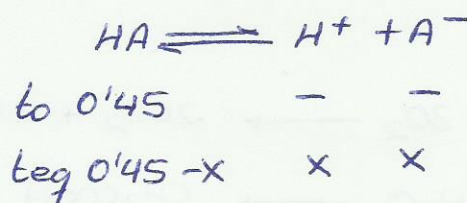 HA ⇌ H⁺ + A⁻
to 0'45 - -
teq 0'45 -x x x